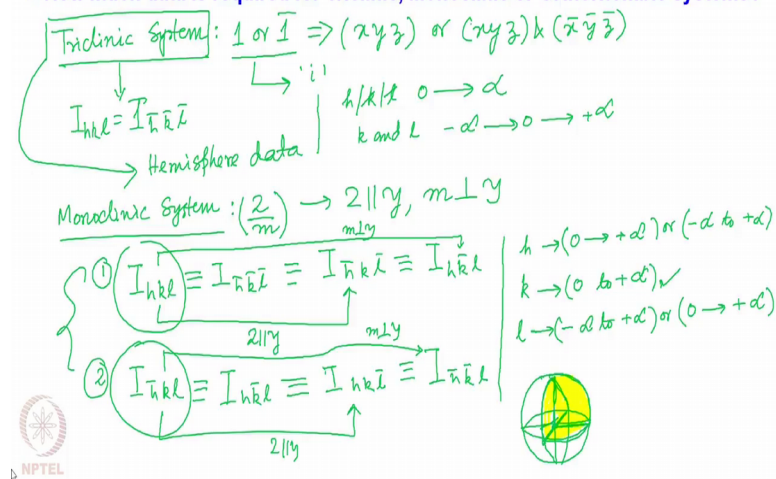 Triclinic System : 1 or 1̄ ⇒ (x y z) or (x y z) & (x̄ ȳ z̄)
'i'
I_hkl = I_h̄k̄l̄
h/k/l 0 → α
k and l -α → 0 → +α
Hemisphere data
Monoclinic System : (2/m) → 2||y, m⊥y
m⊥y
① I_hkl ≡ I_h̄k̄l̄ ≡ I_h̄kl̄ ≡ I_hk̄l
2||y
m⊥y
② I_h̄kl ≡ I_hk̄l̄ ≡ I_hkl̄ ≡ I_h̄k̄l
2||y
h → (0 → +α) or (-α to +α)
k → (0 to +α) ✓
l → (-α to +α) or (0 → +α)
NPTEL